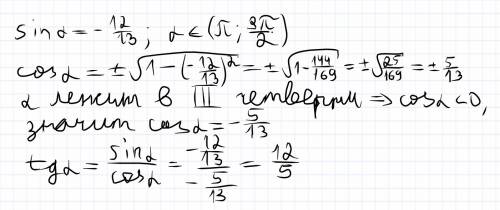 sin α = -12/13; α ∈ (π; 3π/2)
cos α = ±√(1-(-12/13)²) = ±√(1-144/169) = ±√(25/169) = ±5/13
α лежит в III четверти ⇒ cos α < 0,
значит cos α = -5/13
tg α = sin α/cos α = (-12/13)/(-5/13) = 12/5